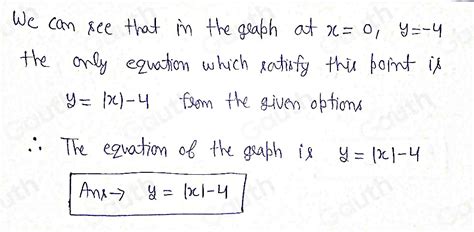 We can see that in the graph at x = 0, y=-4
the only equation which satisfy this point is
y = |x|-4 from the given options
∴ The equation of the graph is y = |x|-4
Ans→ y = |x|-4
Gauth
Gauth
Gauth
Gauth